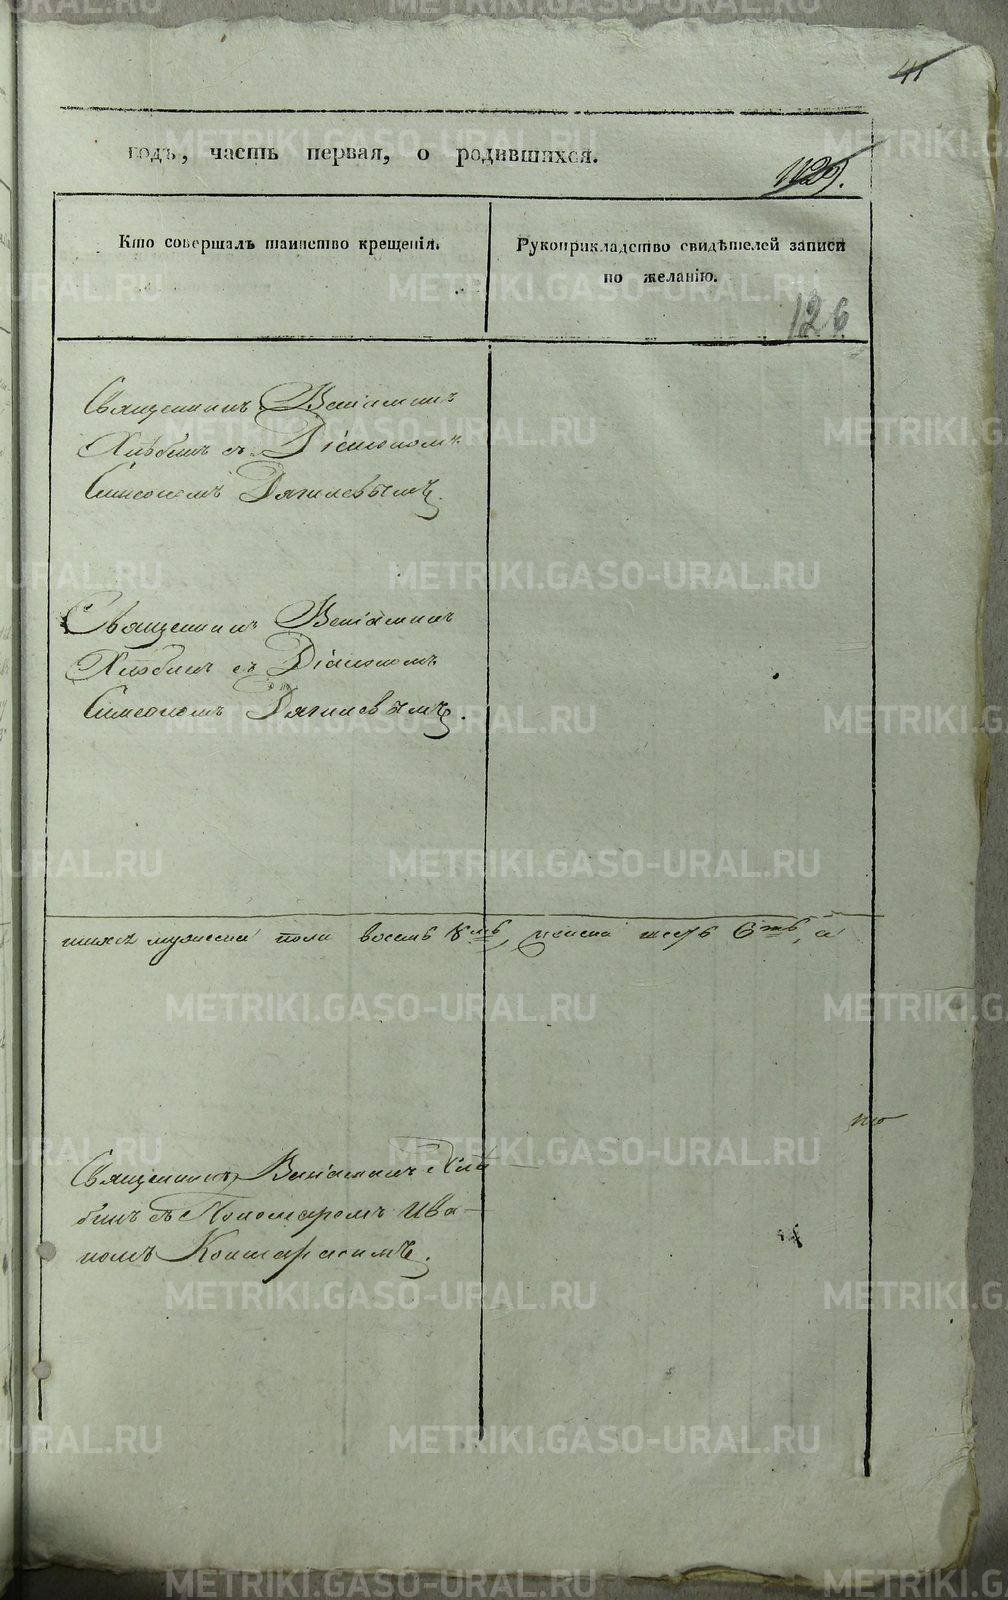 41
годъ, часть первая, о родившихся.
1129.
Кто совершалъ таинство крещенія.
Рукоприкладство свидѣтелей записи
по желанію.
126
Священникъ Веніаминъ
Хлѣбинъ съ Діакономъ
Симеономъ Дягилевымъ.
Священникъ Веніаминъ
Хлѣбинъ съ Діакономъ
Симеономъ Дягилевымъ.
мужеска пола восемь 8мь, женска шесть 6ть, а
Священникъ Веніаминъ Хлѣ
бинъ съ Пономаремъ Ива-
номъ
METRIKI.GASO-URAL.RU